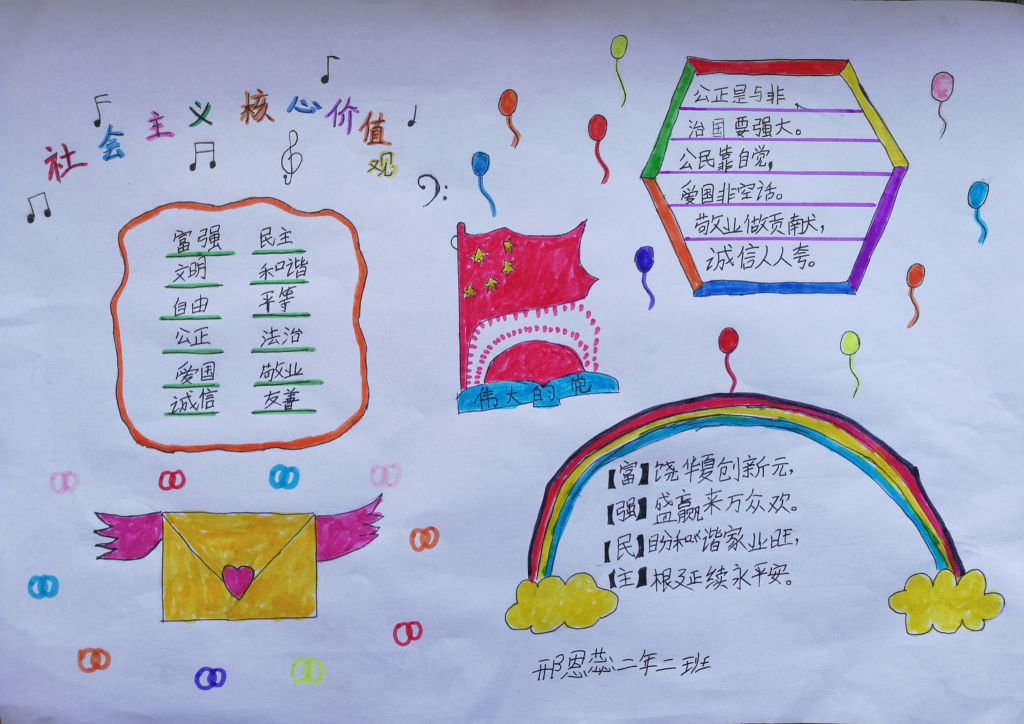 社会主义核心价值观
富强 民主
文明 和谐
自由 平等
公正 法治
爱国 敬业
诚信 友善
公正是与非、
治国要强大。
公民靠自觉,
爱国非空话。
敬业做贡献,
诚信人人夸。
伟大的党
【富】饶华夏创新元,
【强】盛赢来万众欢。
【民】盼和谐家业旺,
【主】根延续永平安。
邢恩蕊二年二班